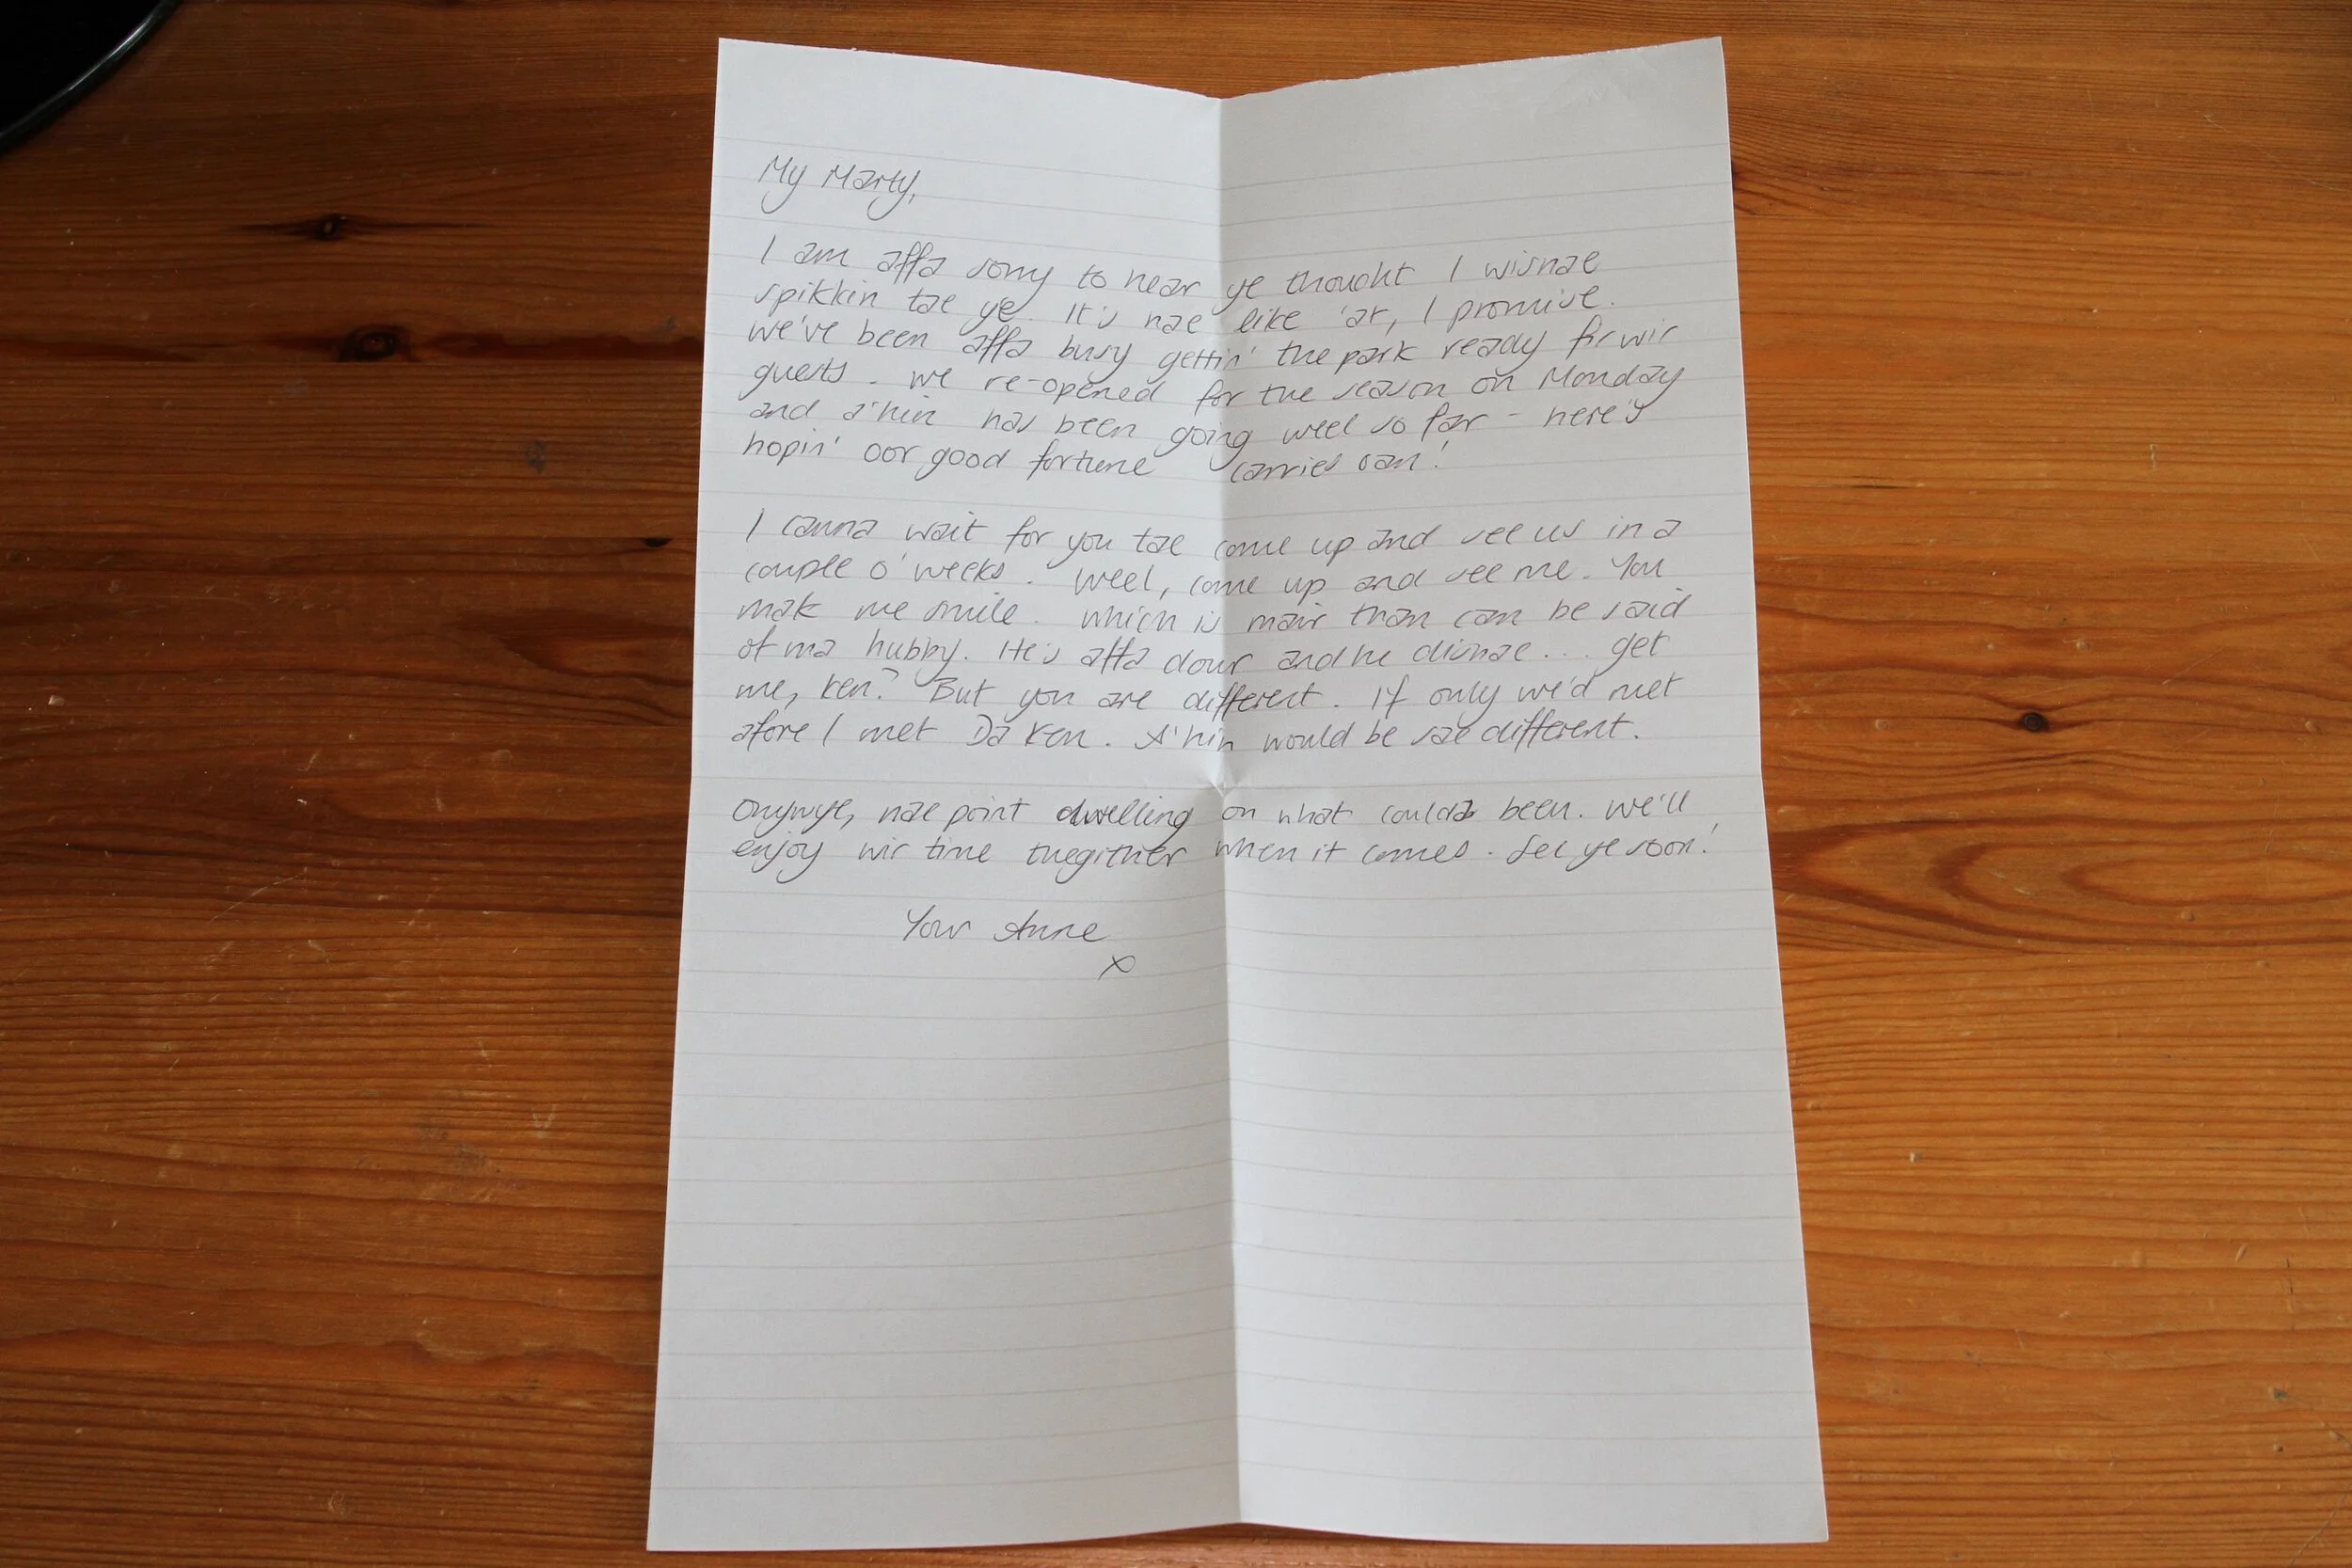 My Marty,
I am affa sorry to hear ye thought I wisnae
spikkin tae ye. It's nae like 'at, I promise.
We've been affa busy gettin' the park ready fir wir
guests. We re-opened for the season on Monday
and a'hin has been going weel so far - here's
hopin' oor good fortune carries oan!
I canna wait for you tae come up and see us in a
couple o' weeks. Weel, come up and see me. You
mak me smile. Which is mair than can be said
of ma hubby. He's affa dour and he disnae... get
me, ken? But you are different. If only we'd met
afore I met Da Ken. A'hin would be sae different.
Onywye, nae point dwelling on what coulda been. We'll
enjoy wir time thegither when it comes. See ye soon!
Your Anne
x